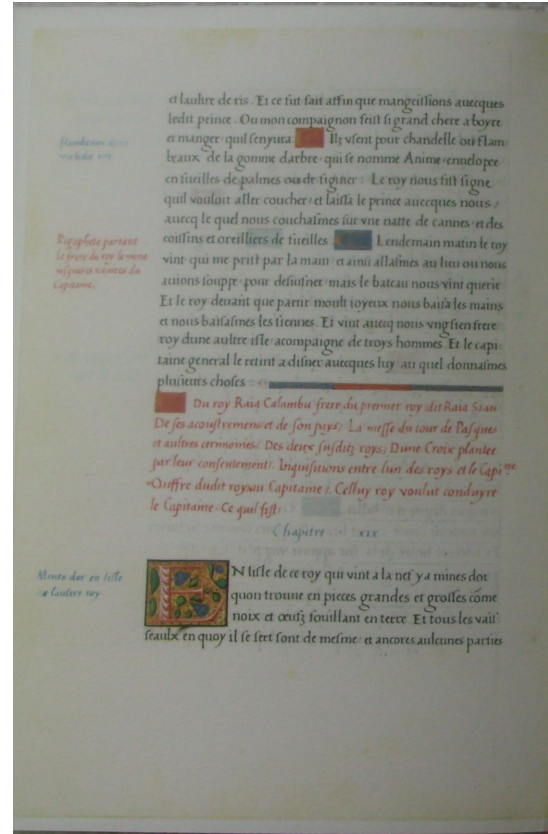 et laultre de ris. Et ce fut fait affin que mangeissions auecques
ledit prince. Ou mon compaignon feist si grand chere a boyre
et manger quil senyura Ilz vsent pour chandelle ou flam-
beaux de la gomme darbre qui se nomme Anime enuelopee
en fueilles de palmes ou de figuier: Le roy nous fist signe
quil vouloit aller coucher et laissa le prince auecques nous /
auecq le quel nous couchasmes sur vne natte de cannes et des
coussins et oreilliers de fueilles Lendemain matin le roy
vint qui me prist par la main et ainsi allasmes au lieu ou nous
auions souppe pour desiuner mais le bateau nous vint querir
Et le roy deuant que partir moult ioyeux nous baisa les mains
et nous baisasmes les siennes. Et vint auecq nous vng sien frere
roy dune aultre isle acompaigne de troys hommes. Et le capi-
taine general le retint a disner auecques luy au quel donnasmes
plusieurs choses
flambeaux
Pigaphete partant
le frere du roy le mene
Capitaine.
Du roy Raia Calambu frere du premier roy dit Raia Siau
De ses acoustremens et de son pays / La messe du iour de Pasques
et aultres cerimonies. Des deux susditz roys / Dune Croix plantee
par leur consentement. Inquisitions entre lun des roys et le Capi.ne
Ouffre dudit roy au Capitaine. Celluy roy voulut conduyre
le Capitaine. Ce quil fist.
Chapitre xix
Mines dor en lisle
laultre roy
EN lisle de ce roy qui vint a la nef y a mines dor
quon trouue en pieces grandes et grosses cōme
noix et œufz fouillant en terre. Et tous les vais-
seaulx en quoy il se sert sont de mesme et ancores aulcunes parties